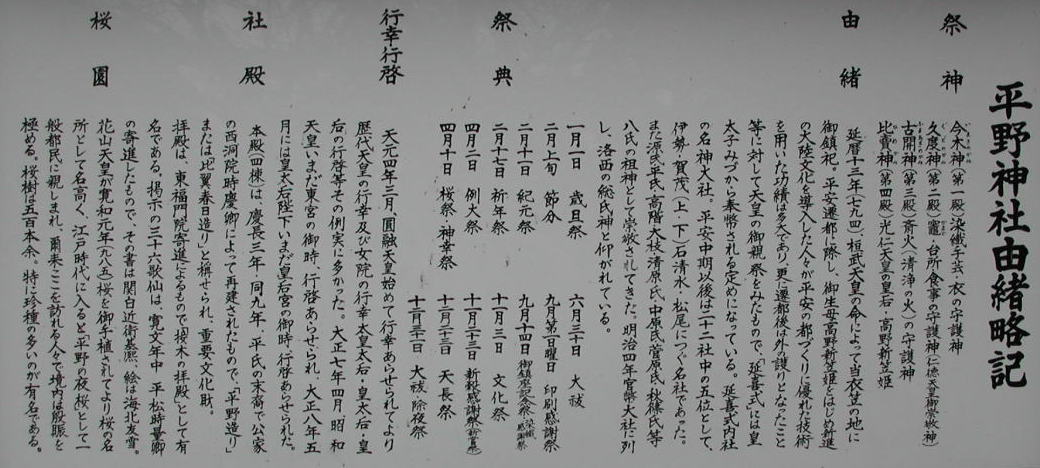 平野神社由緒略記
祭神
今木神(第一殿)染織手芸、衣の守護神
久度神(第二殿)竈、台所食事の守護神(仁徳天皇御崇敬神)
古開神(第三殿)斎火(清浄の火)の守護神
比賣神(第四殿)光仁天皇の皇后・高野新笠姫
由緒
延暦十三年(七九四)桓武天皇の命によって当衣笠の地に
御鎮祀。平安遷都に際し、御生母高野新笠姫をはじめ新進
の大陸文化を導入した人々が平安の都づくりに優れた技術
を用いた功績は多大であり、更に遷都後は外護りとなったこと
等に対して天皇の御親祭をみたもので、「延喜式」には皇
太子みづから奉幣される定めになっている。延喜式内社
の名神大社。平安中期以後は二十二社中の五位として、
伊勢、賀茂(上・下)石清水、松尾につぐ名社であった。
また源氏・平氏・高階・大枝・清原氏・中原氏・菅原氏・秋篠氏等
八氏の祖神として崇敬されてきた。明治四年官幣大社に列
し、洛西の総氏神と仰がれている。
祭典
一月一日 歳旦祭 六月三十日 大祓
二月上旬 節分 九月第二日曜日 印刷感謝祭
二月十一日 紀元祭 九月十四日 御鎮座記念祭・染織感謝祭
二月十七日 祈年祭 十一月三日 文化祭
四月二日 例大祭 十一月二十三日 新穀感謝祭(新嘗祭)
四月十日 桜祭・神幸祭 十二月二十三日 天長祭
十二月三十一日 大祓・除夜祭
行幸行啓
天元四年三月、圓融天皇始めて行幸あらせられてより
歴代天皇の行幸及び女院の行幸、太皇太后・皇太后・皇
后の行啓等その例実に多かった。大正七年四月、昭和
天皇いまだ東宮の御時、行啓あらせられ、大正八年五
月には皇太后陛下いまだ皇后宮の御時、行啓あらせられた。
社殿
本殿(四棟)は、慶長三年・同九年、平氏の末裔で公家
の西洞院時慶卿によって再建されたもので、「平野造り」
または「比翼春日造り」と称せられ、重要文化財。
拝殿は、東福門院寄進によるもので、「接木の拝殿」として有
名である。掲示の三十六歌仙は、寛文年中 平松時量卿
の寄進したもので、その書は関白近衛基熈、絵は海北友雪。
桜園
花山天皇が寛和元年(九八五)桜を御手植されてより桜の名
所として名高く、江戸時代に入ると「平野の夜桜」として一
般都民に親しまれ、爾来ここを訪れる人々で境内は殷賑を
極める。桜樹は五百本余。特に珍種の多いのが有名である。